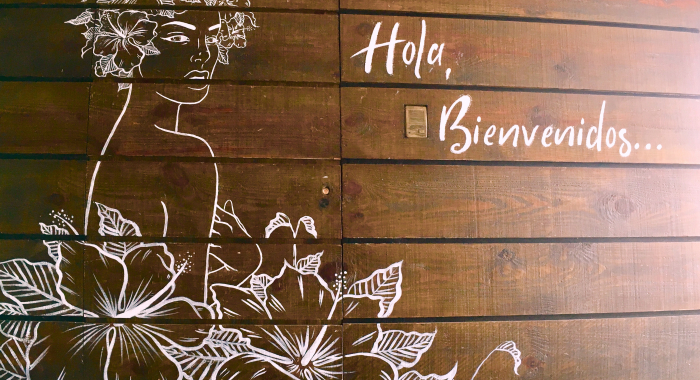 Hola,
Bienvenidos...